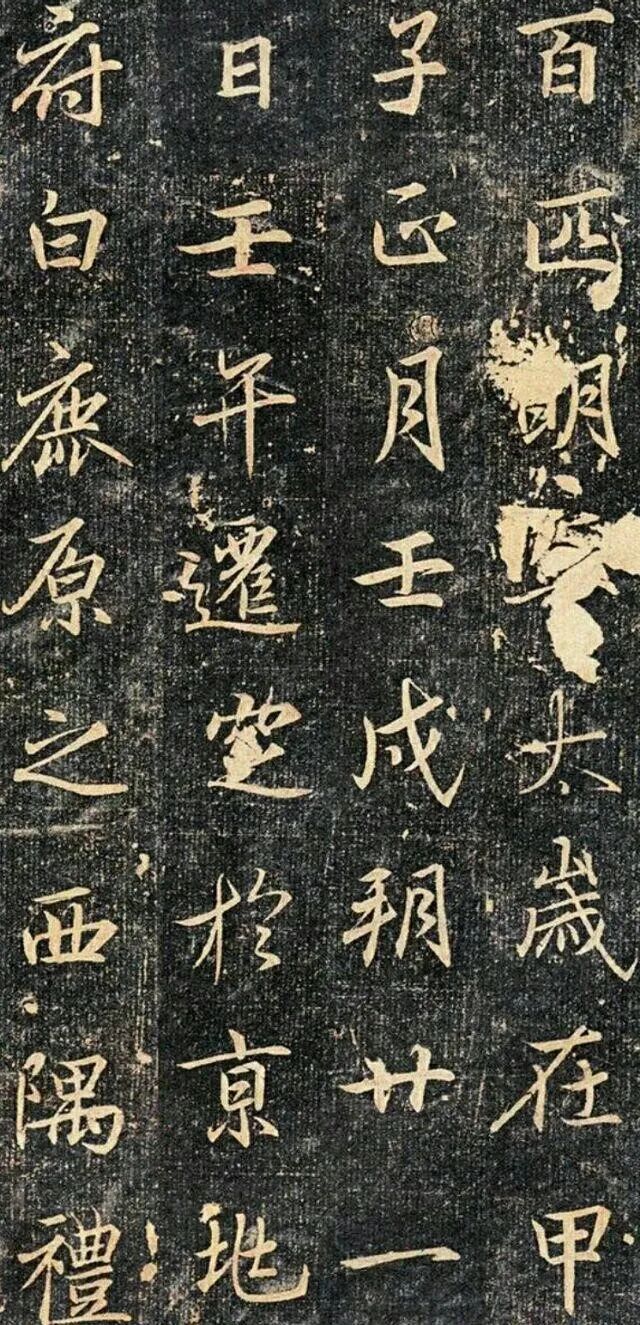 百匹明太歲在甲
子正月壬戌朔廿一
日壬午遷窆於京兆
府白鹿原之西隅禮